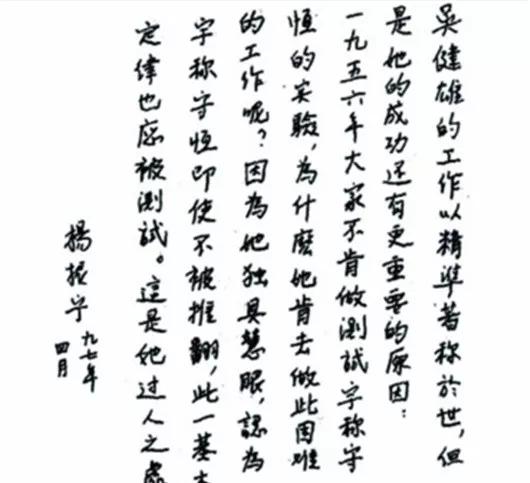 吳健雄的工作以精準著称於世,但
是她的成功还有更重要的原因:
一九五六年大家不肯做測試宇称守
恒的实驗,為什麼她肯去做此困难
的工作呢?因為她独具慧眼,認為
宇称守恒即使不被推翻,此一基本
定律也應被測試。這是她过人之處
楊振宁
九七年
四月